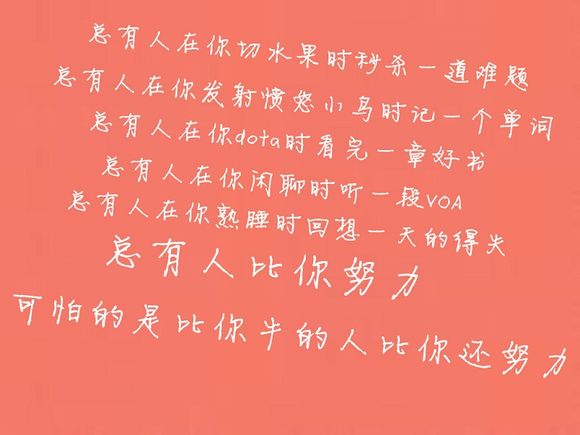 总有人在你切水果时秒杀一道难题
总有人在你发射愤怒小鸟时记一个单词
总有人在你dota时看完一章好书
总有人在你闲聊时听一段VOA
总有人在你熟睡时回想一天的得失
总有人比你努力
可怕的是比你牛的人比你还努力